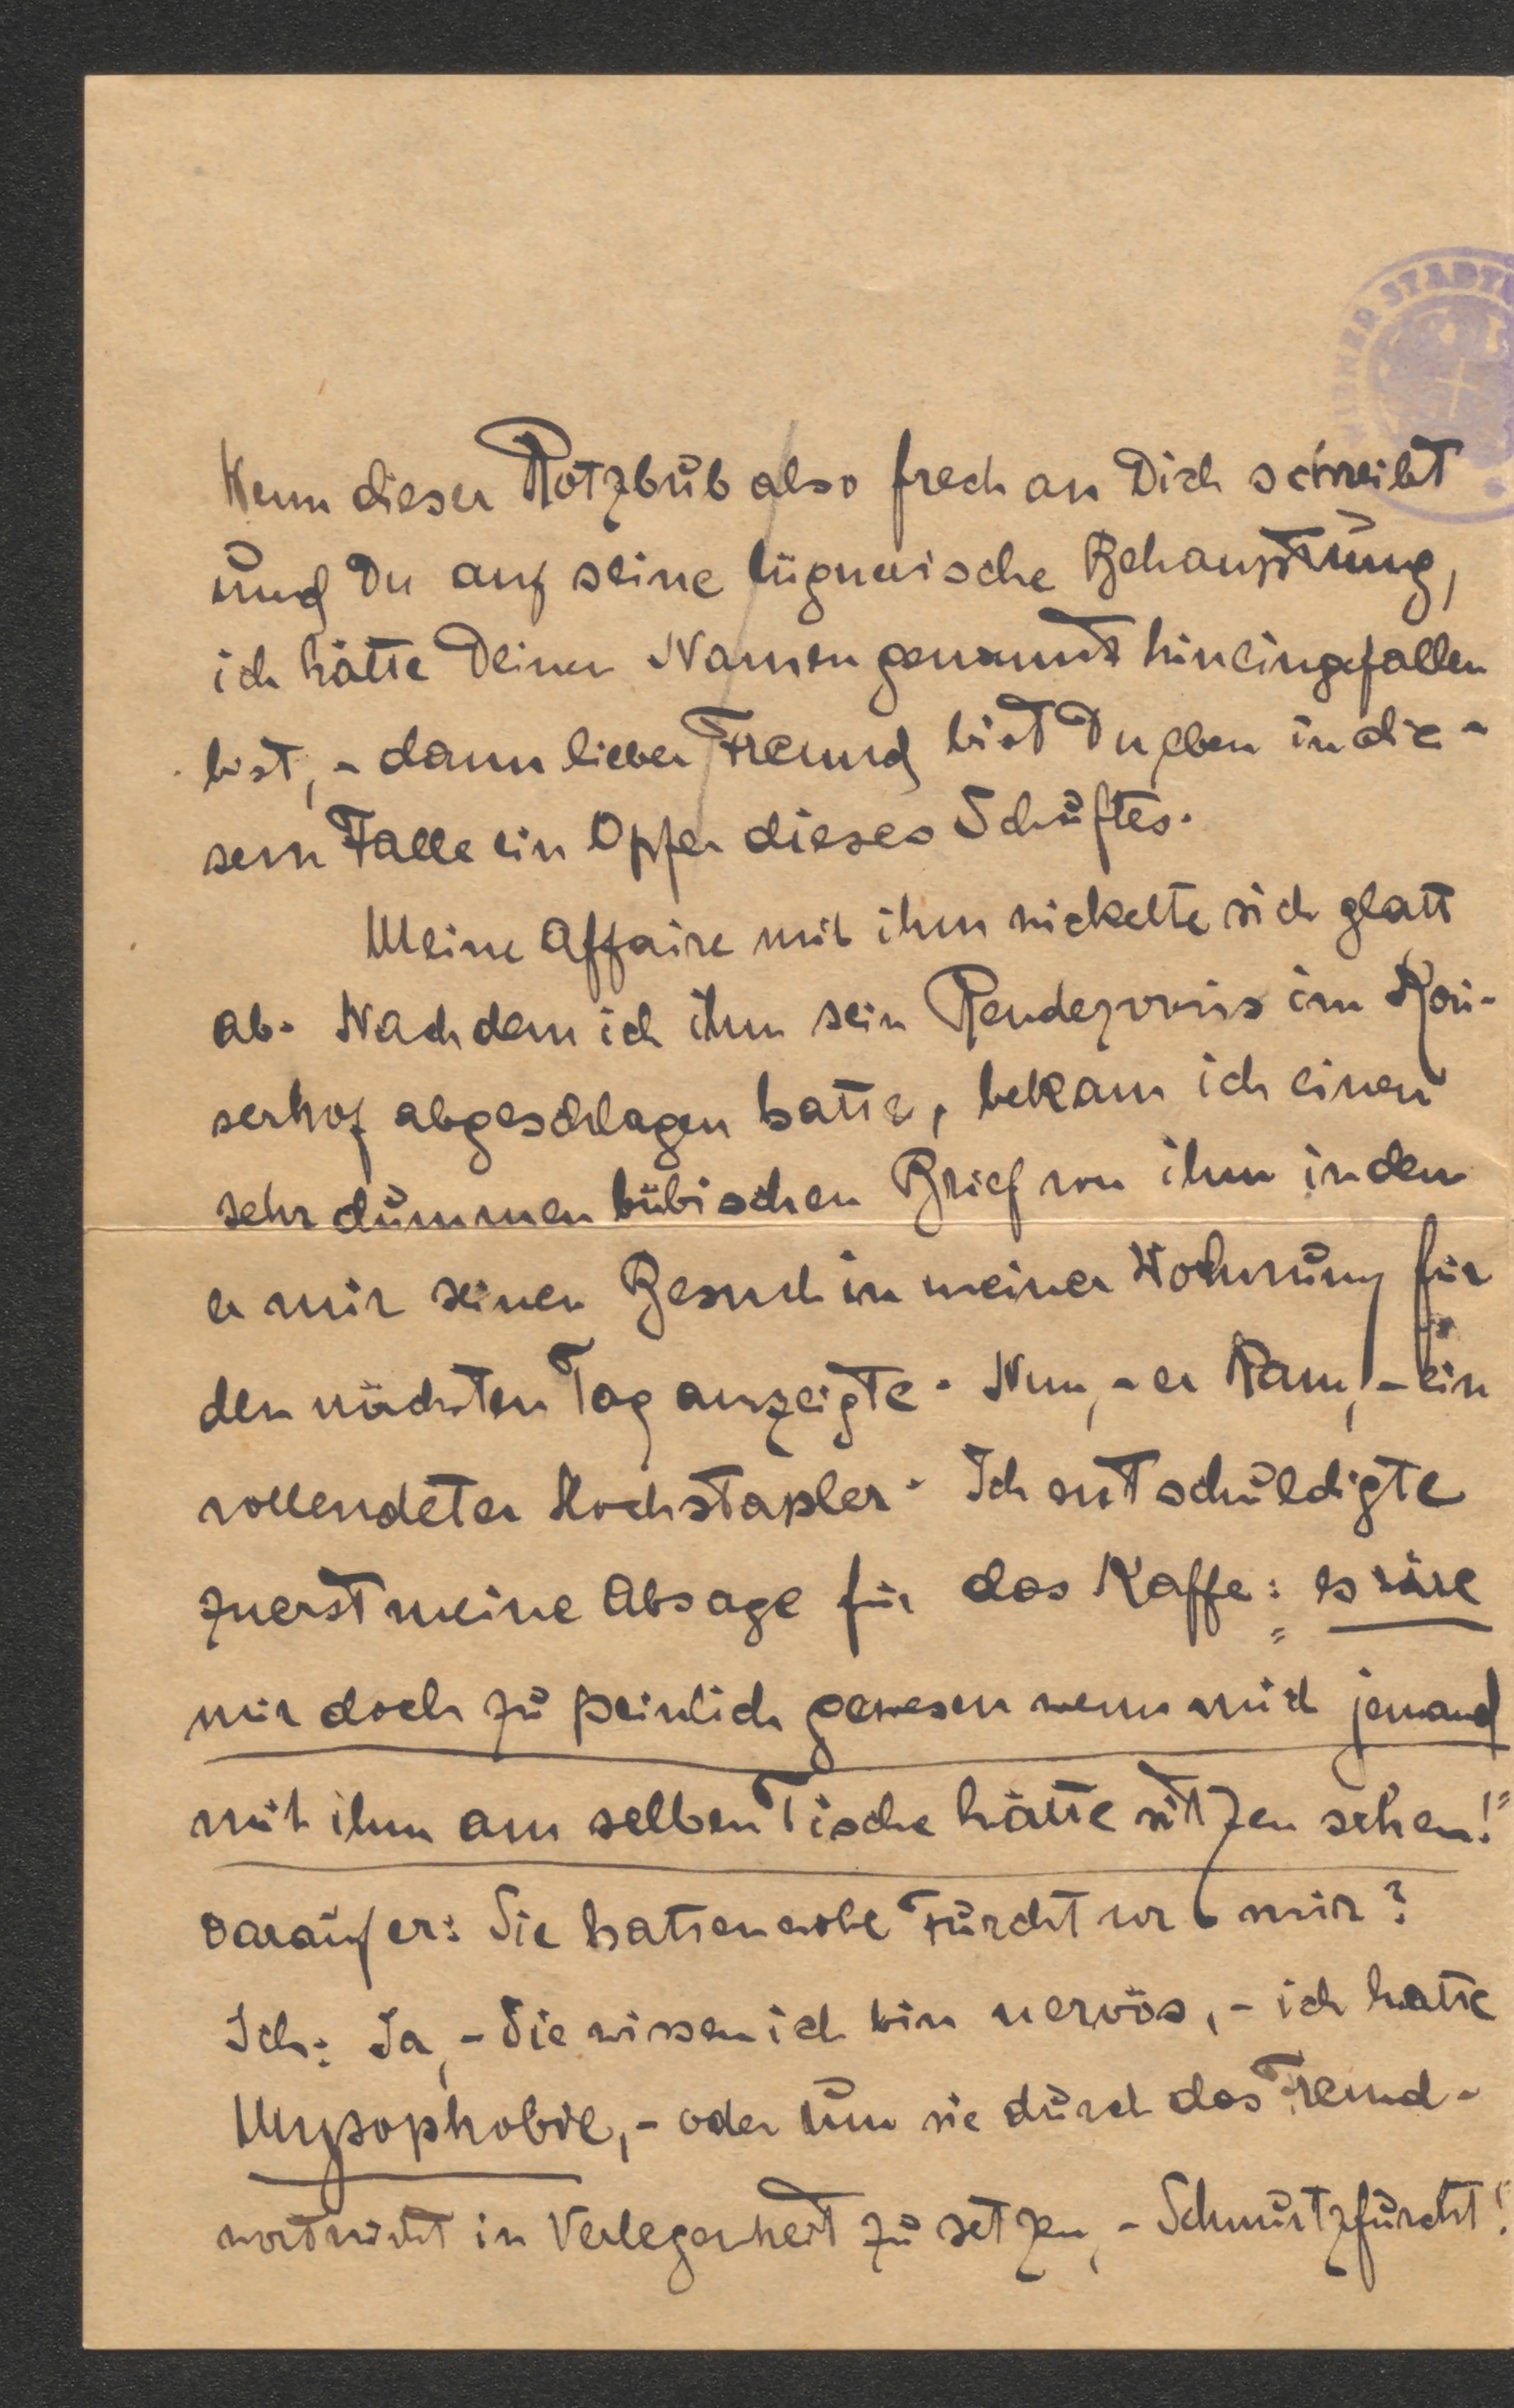 WIENER STADT
Wenn dieser Rotzbub also frech an Dich schreibt
und Du auf seine lügnerische Behauptung,
ich hätte Deinen Namen genannt hineingefallen
bist, - dann lieber Freund bist Du eben in die-
sem Falle ein Opfer dieses Schuftes.
Meine Affaire mit ihm wickelte sich glatt
ab. Nachdem ich ihm sein Rendezvous im Kai-
serhof abgeschlagen hatte, bekam ich einen
sehr dummen bübischen Brief von ihm in dem
er mir seinen Besuch in meiner Wohnung für
den nächsten Tag anzeigte. Nun, - er kam, - ein
vollendeter Hochstapler. Ich entschuldigte
zuerst meine Absage für das Kaffe: „es wäre
mir doch zu peinlich gewesen wenn mich jemand
mit ihm am selben Tische hätte sitzen sehen!“
Darauf er: Sie hatten wohl Furcht vor mir?
Ich: Ja, - Sie wissen ich bin nervös, - ich hatte
Mysophobie, - oder um sie durch das Fremd-
wort nicht in Verlegenheit zu setzen, - Schmutzfurcht!